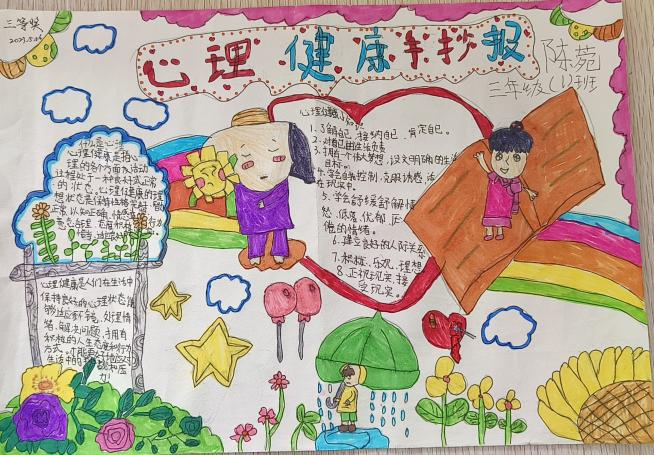 三等奖
心理健康手抄报
陈菀
三年级(1)班
什么是心
心理健康是指心
理的各个方面及活动
过程处于一种良好或正常
的状态。心理健康的理
想状态是保持性格完好、智
力正常、认知正确、情感适
心理健康是人们在生活中
保持良好的心理状态,能
够适应环境、处理情
绪、解决问题,拥有
积极的人生态度和行为
方式。
生活中的
力
心理健康小知识
1、了解自己,接纳自己,肯定自己。
2、对自己的生活负责
3、拥有一个伟大梦想,设立明确的生活
目标。
4、学会自我控制,克服情感,活
在现实中。
5、学会舒缓舒解情
怒、低落、忧郁、
倦的情绪。
6、建立良好的人际关系
7、积极、乐观、理想
8、正视现实,接
受现实。